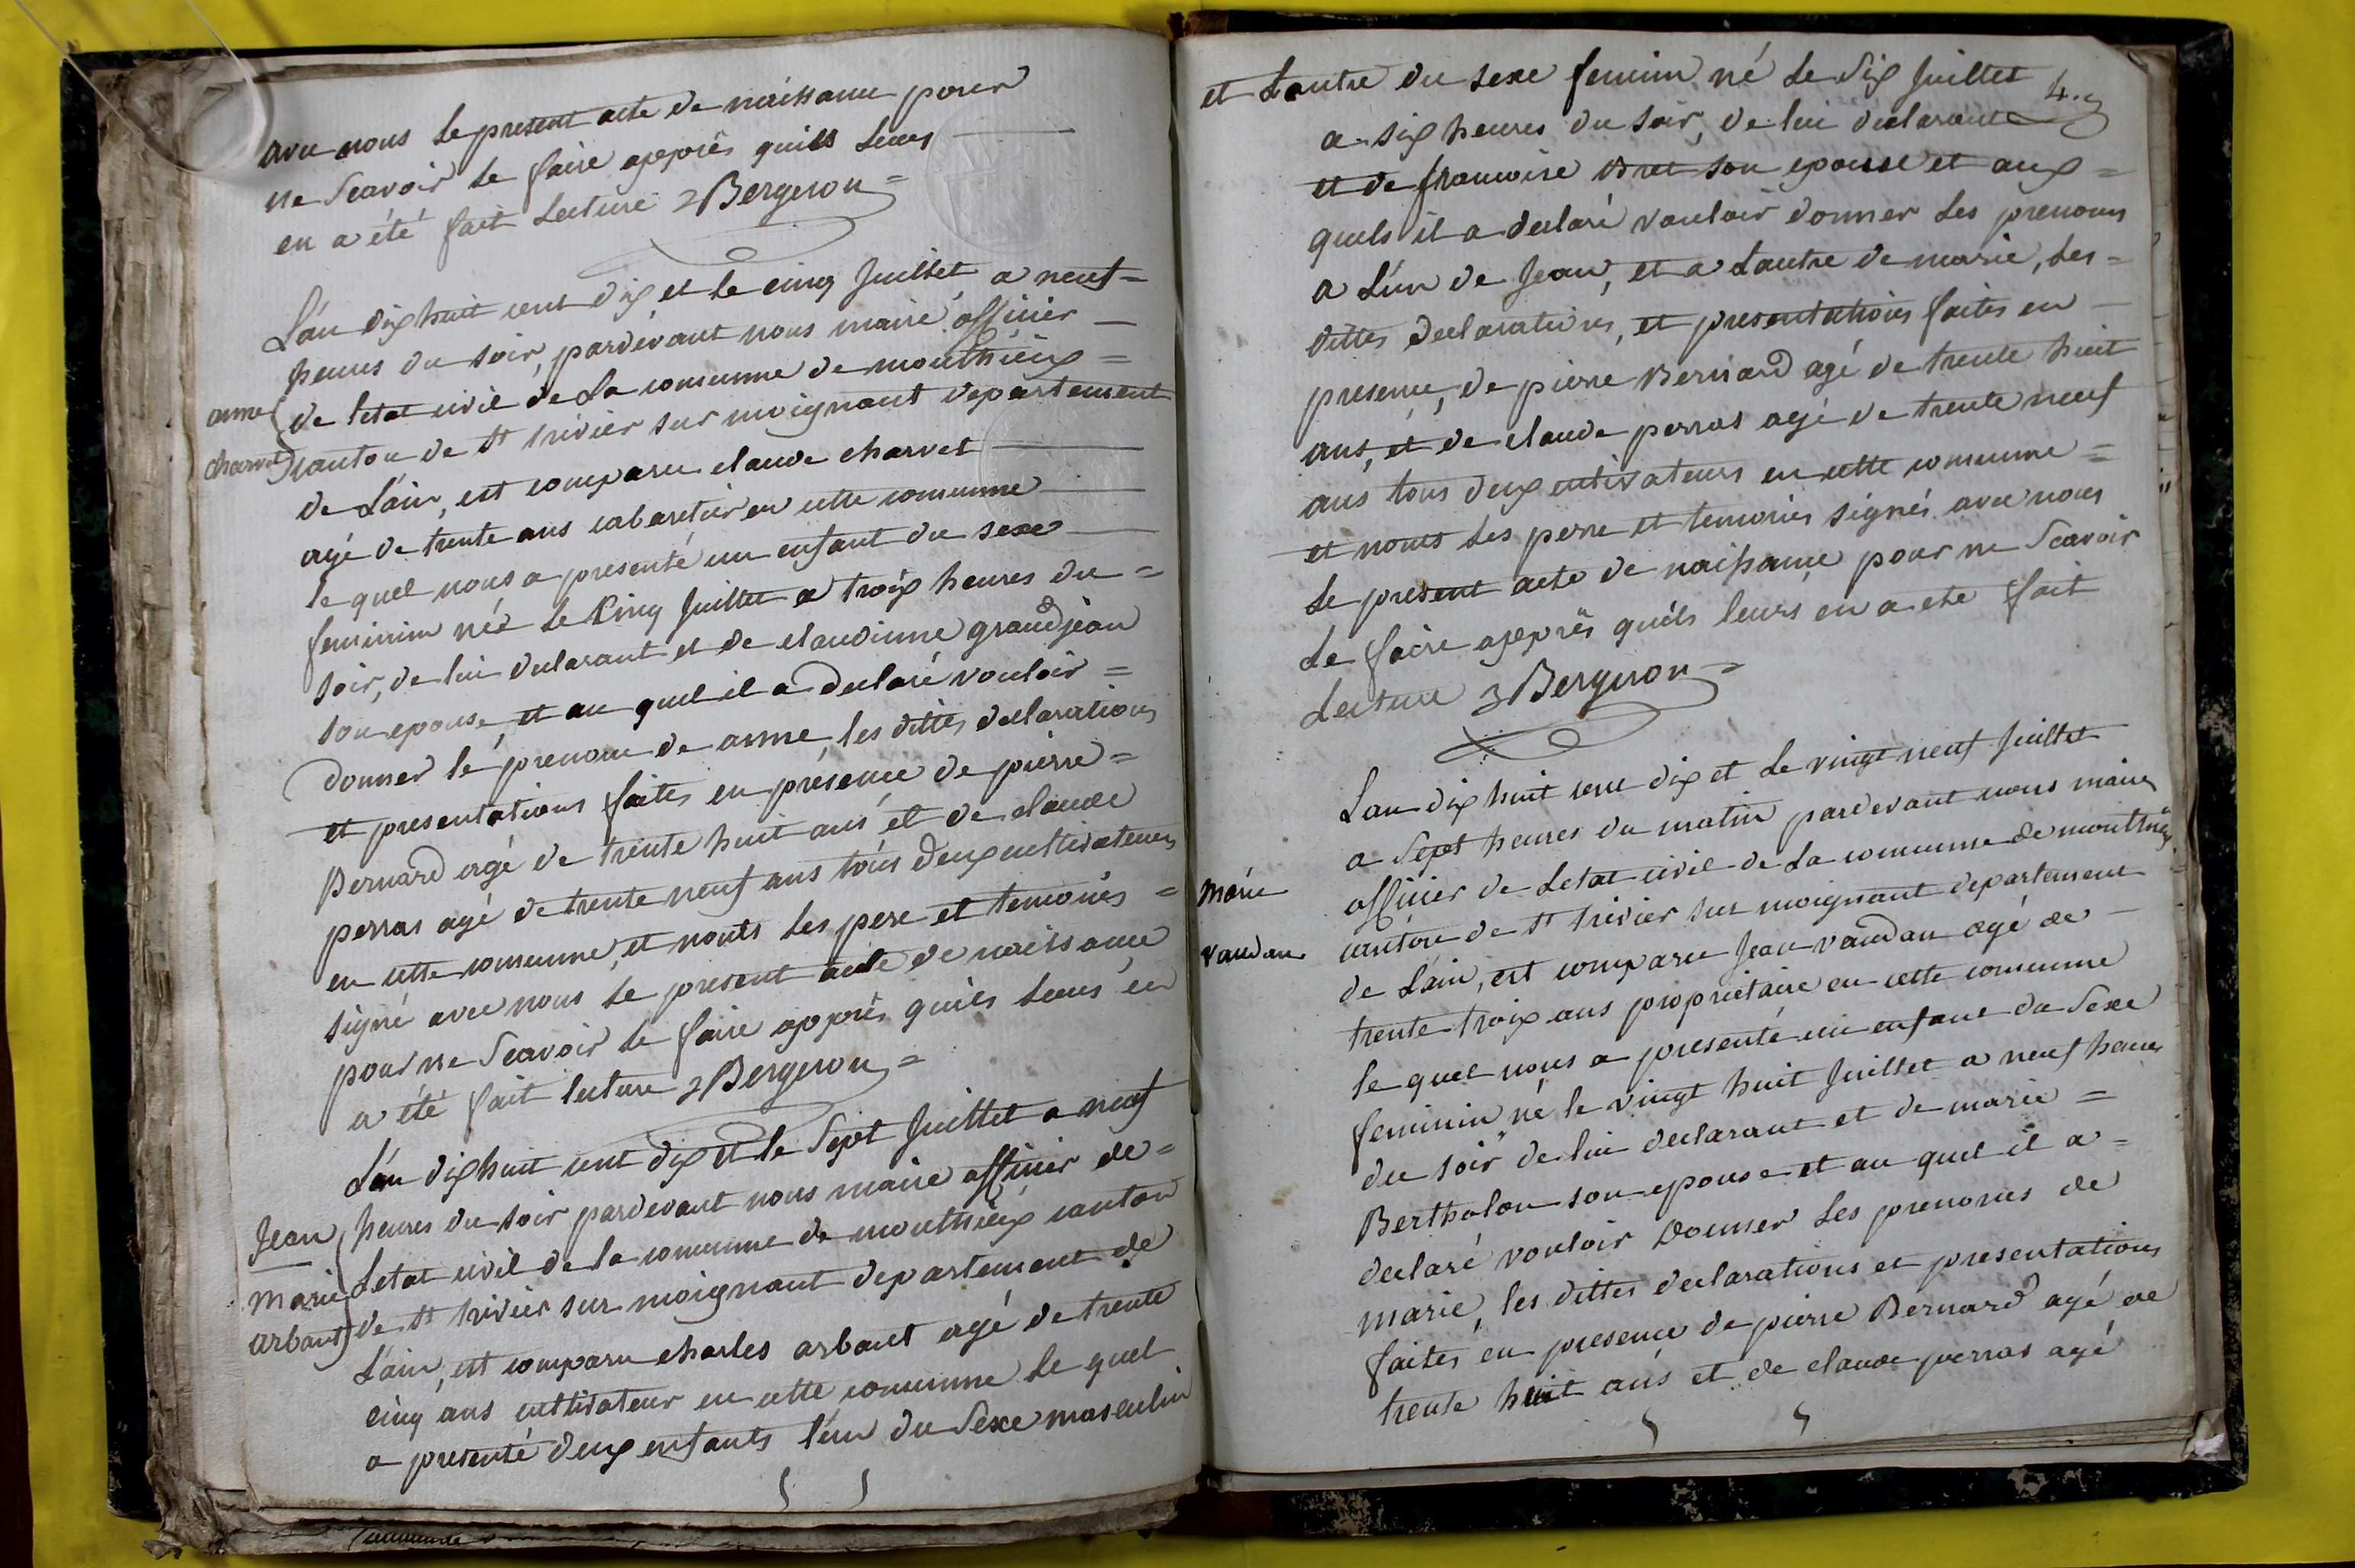 avec nous le present acte de naissance pour
ne scavoir le faire apprès quils leurs
en a été fait lecture Bergeron =
L'an dix huit cent dix et le cinq Juillet a neuf =
heures du soir, pardevant nous maire officier
de letat civil de La commune de mouthieux =
anne
charvet
canton de St trivier sur moignant departement
de L'ain, est comparu claude charvet
agé de trente ans cabaretier en cette commune
le quel nous a presenté un enfant du sexe
feminim née le Cinq Juillet a troix heures du =
soir, de lui declarant et de claudinne grandjean
son epouse, et au quel il a declaré vouloir =
donner le prenom de anne, les dittes declarations
et presentations faites en présence de pierre =
Bernard agé de trente huit ans et de claude
perras agé de trente neuf ans tous deux cultivateurs
en cette commune, et nonts les pere et temoins =
signé avec nous le present acte de naissance
pour ne scavoir le faire apprès quils leurs en
a été fait lecture Bergeron =
L'an dix huit cent dix et le Sept Juillet a neuf
Jean
heures du soir pardevant nous maire officier de =
Letat civil de la commune de mouthieux canton
marie
arbant
de St trivier sur moignant departement de
L'ain, est comparu charles arbant agé de trente
cinq ans cultivateur en cette commune le quel
a presenté deux enfants l'un du Sexe masculin
et Lautre du sexe feminin né le Six Juillet
4.
a six heures du soir, de lui declarant
et de francoise Bret son epouse et aux =
quels il a declaré vouloir donner les prenoms
a L'un de Jean, et a Lautre de marie, les =
dittes declarations, et presentations faites en
presence, de pierre Bernard agé de trente huit
ans, et de claude perras agé de trente neuf
ans tous deux cutivateurs en cette commune =
et nonts les perre et temoins signés avec nous
le present acte de naissance pour ne Scavoir
le faire apprès quils leurs en a ete fait
Lecture Bergeron =
Lan dix huit cent dix et le vingt neuf Juillet
a Sept heures du matin pardevant nous maire
officier de Letat civil de La commune de mouthieux
marie
vaudan
canton de St trivier sur moignant departement
de L'ain, est comparu Jean vaudan agé de
trente troix ans proprietaire en cette commune
le quel nous a presenté un enfant du Sexe
feminin né le vingt huit Juillet a neuf heures
du soir de lui declarant et de marie =
Bertholon son epouse et au quel il a =
declaré vouloir donner les prenoms de
marie, les dittes declarations et presentations
faites en presence de pierre Bernard agé de
trente huit ans et de claude perras agé